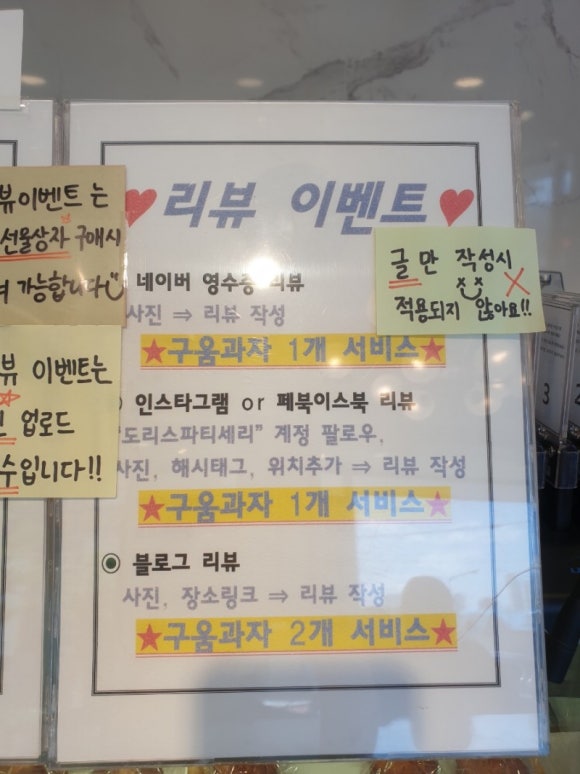 리뷰 이벤트
네이버 영수증 리뷰
사진 ⇒ 리뷰 작성
★구움과자 1개 서비스★
인스타그램 or 페북이스북 리뷰
"도리스파티세리" 계정 팔로우,
사진, 해시태그, 위치추가 ⇒ 리뷰 작성
★구움과자 1개 서비스★
블로그 리뷰
사진, 장소링크 ⇒ 리뷰 작성
★구움과자 2개 서비스★
뷰이벤트 는
선물상자 구매시
가능합니다
뷰 이벤트는
업로드
수입니다!!
글만 작성시
적용되지 않아요!!
3